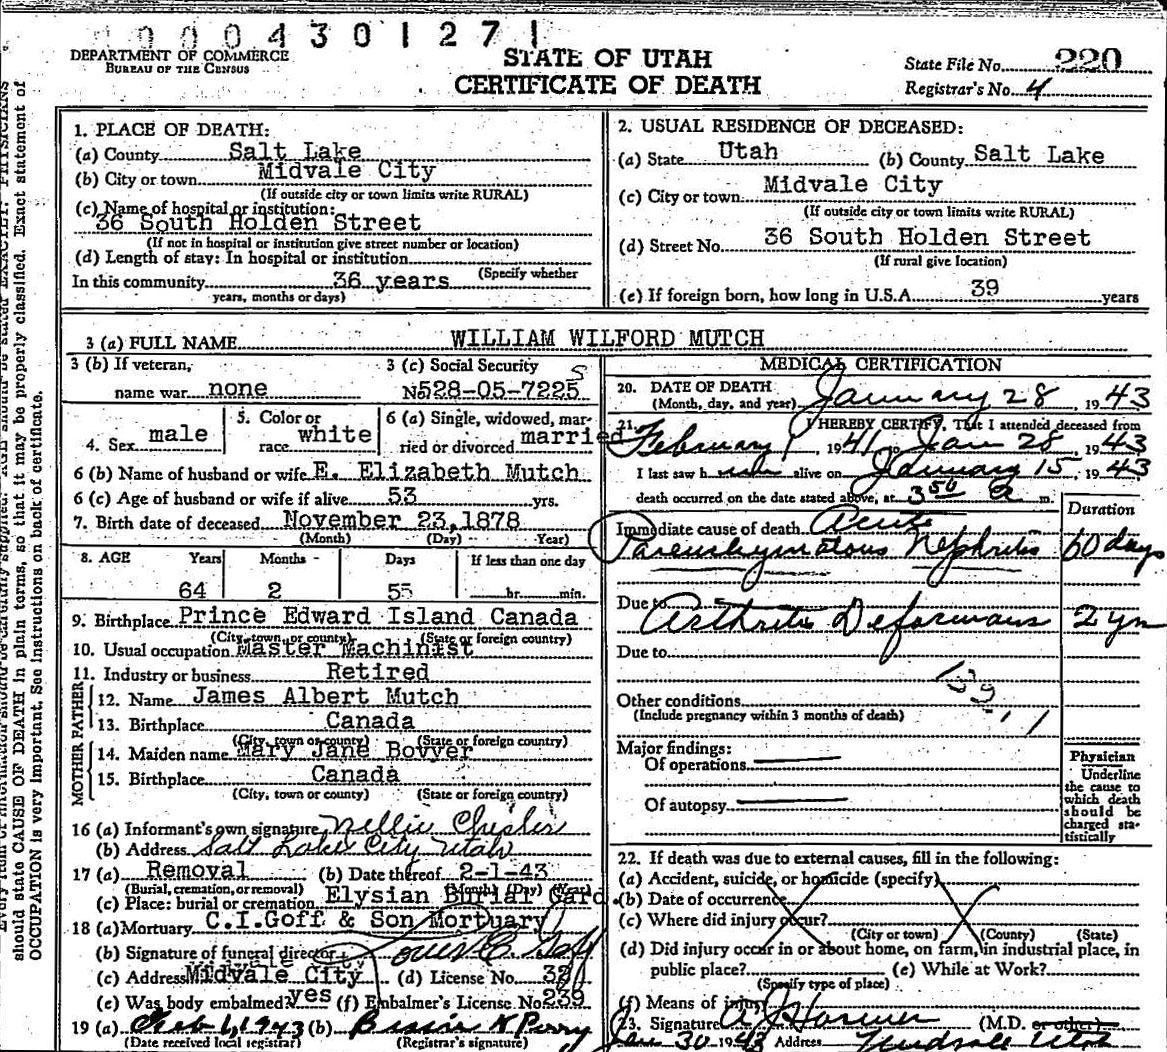 0004301271
DEPARTMENT OF COMMERCE
BUREAU OF THE CENSUS
STATE OF UTAH
CERTIFICATE OF DEATH
State File No. 220
Registrar's No. 4
should state CAUSE OF DEATH in plain terms, so that it may be properly classified. Exact statement of
OCCUPATION is very important. See instructions on back of certificate.
1. PLACE OF DEATH:
(a) County Salt Lake
(b) City or town Midvale City
(If outside city or town limits write RURAL)
(c) Name of hospital or institution:
36 South Holden Street
(If not in hospital or institution give street number or location)
(d) Length of stay: In hospital or institution
(Specify whether
In this community 36 years
years, months or days)
2. USUAL RESIDENCE OF DECEASED:
(a) State Utah (b) County Salt Lake
(c) City or town Midvale City
(If outside city or town limits write RURAL)
(d) Street No. 36 South Holden Street
(If rural give location)
(e) If foreign born, how long in U.S.A. 39 years
3 (a) FULL NAME WILLIAM WILFORD MUTCH
3 (b) If veteran,
name war none
3 (c) Social Security S
No 528-05-7225
4. Sex male
5. Color or
race white
6 (a) Single, widowed, mar-
ried or divorced married
6 (b) Name of husband or wife E. Elizabeth Mutch
6 (c) Age of husband or wife if alive 53 yrs.
7. Birth date of deceased November 23, 1878
(Month) (Day) Year)
8. AGE Years Months Days If less than one day
64 2 5 hr. min.
9. Birthplace Prince Edward Island Canada
(City, town, or county) (State or foreign country)
10. Usual occupation Master Machinist
11. Industry or business Retired
FATHER
12. Name James Albert Mutch
13. Birthplace Canada
(City, town or county) (State or foreign country)
MOTHER
14. Maiden name Mary Jane Bovyer
15. Birthplace Canada
(City, town or county) (State or foreign country)
16 (a) Informant's own signature Nellie Chesler
(b) Address Salt Lake City Utah
17 (a) Removal (b) Date thereof 2-1-43
(Burial, cremation, or removal) (Month) (Day) (Year)
(c) Place: burial or cremation Elysian Burial Gard.
18 (a) Mortuary C.I.Goff & Son Mortuary
(b) Signature of funeral director
(c) Address Midvale City (d) License No. 32
(e) Was body embalmed? yes (f) Embalmer's License No. 239
19 (a) Feb 1, 1943 (b) Bessie K Perry
(Date received local registrar) (Registrar's signature)
MEDICAL CERTIFICATION
20. DATE OF DEATH
(Month, day, and year) January 28, 1943
21. I HEREBY CERTIFY, That I attended deceased from
February 1, 1941 to Jan 28, 1943
I last saw him alive on January 15, 1943
death occurred on the date stated above, at 3 50 a m.
Duration
Immediate cause of death Acute
Parenchymatous Nephritis 60 days
Due to Arthritis Deformans 2 yrs
Due to
Other conditions
(Include pregnancy within 3 months of death)
Major findings:
Of operations
Of autopsy
Physician
Underline
the cause to
which death
should be
charged sta-
tistically
22. If death was due to external causes, fill in the following:
(a) Accident, suicide, or homicide (specify)
(b) Date of occurrence
(c) Where did injury occur?
(City or town) (County) (State)
(d) Did injury occur in or about home, on farm, in industrial place, in
public place? (e) While at Work?
(Specify type of place)
(f) Means of injury
23. Signature (M.D. or other)
Jan 30 1943 Address Utah